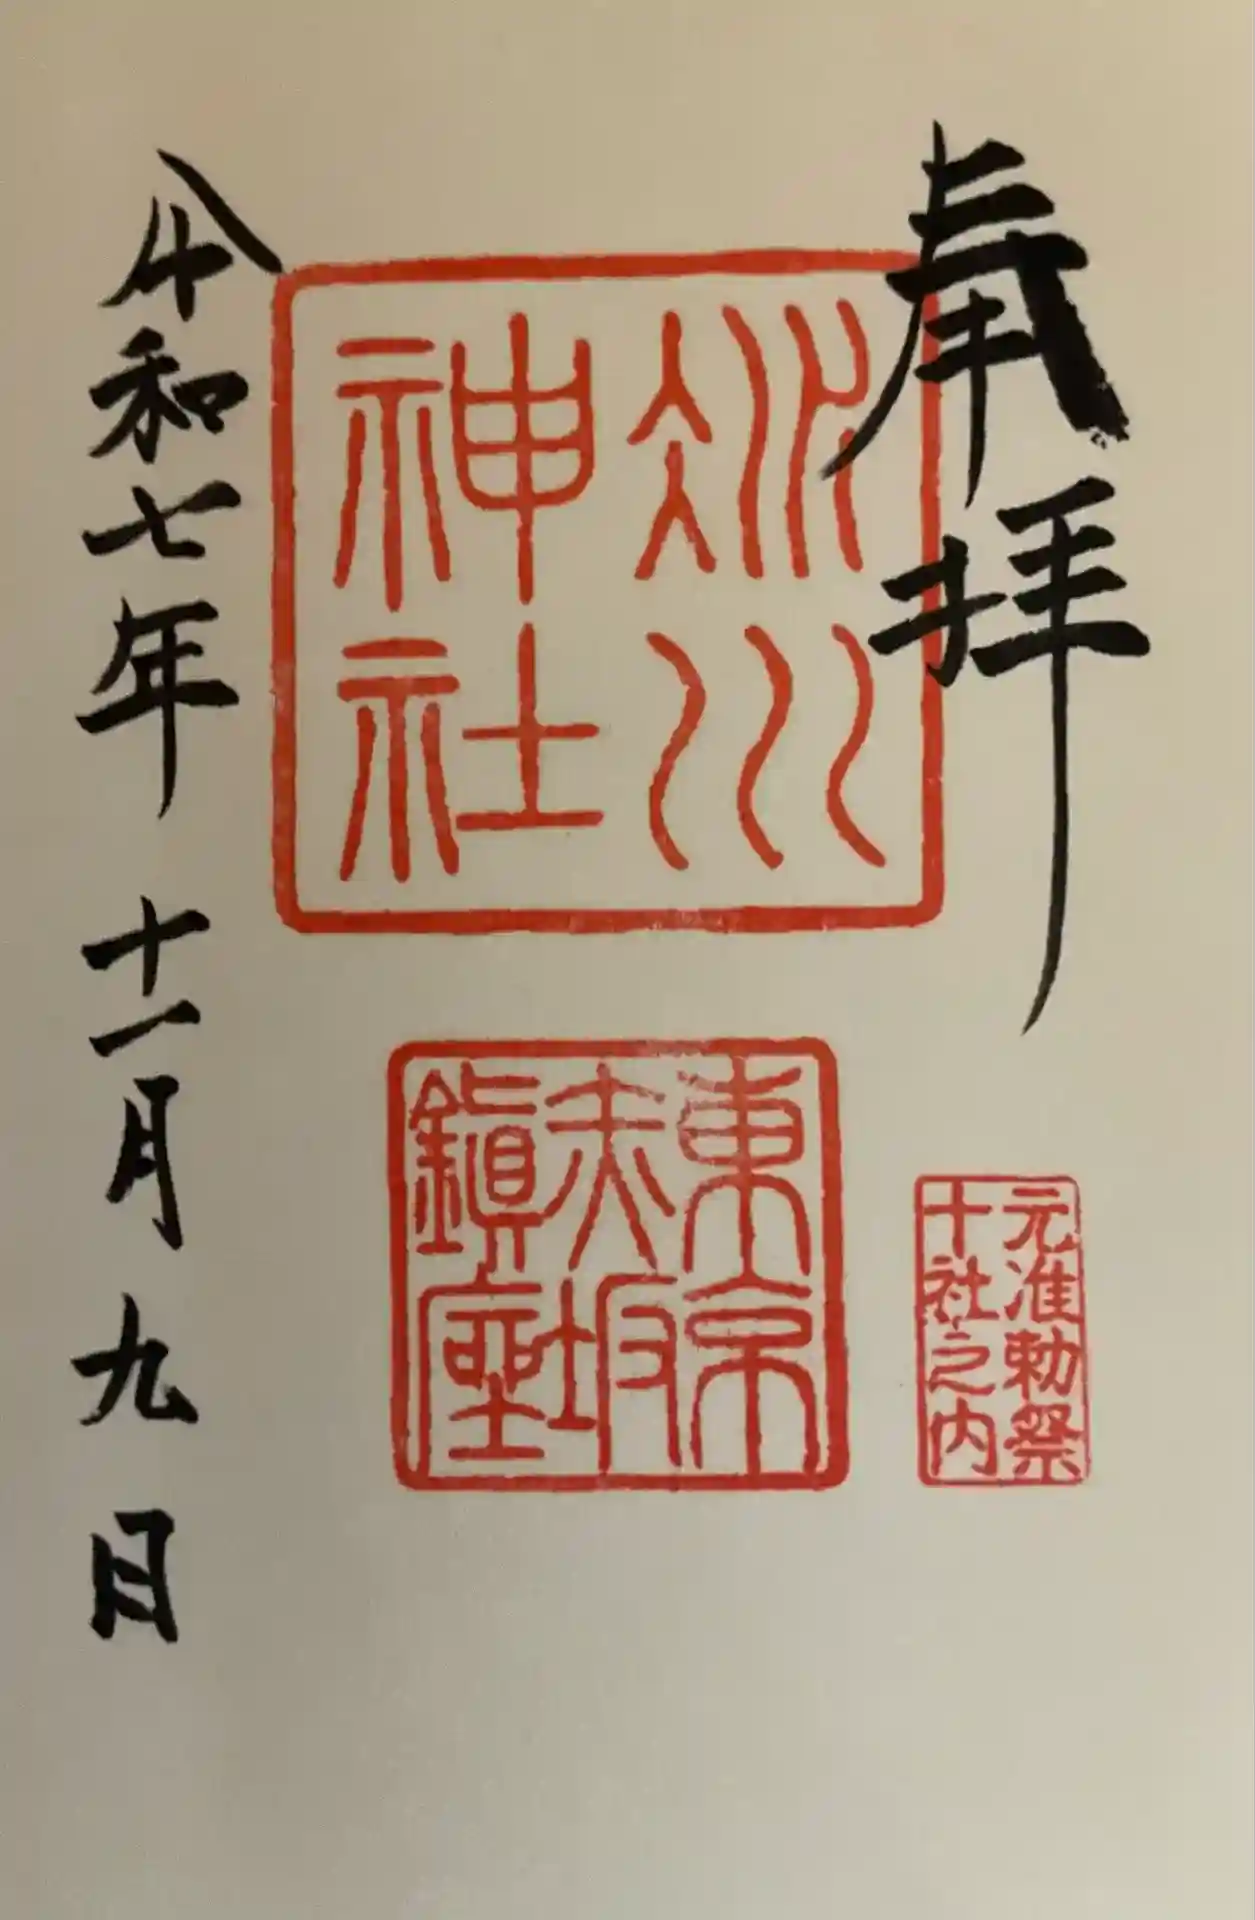 奉拝
氷川
神社
東京
赤坂
鎮座
元准勅祭
十社之内
令和七年 十一月 九日